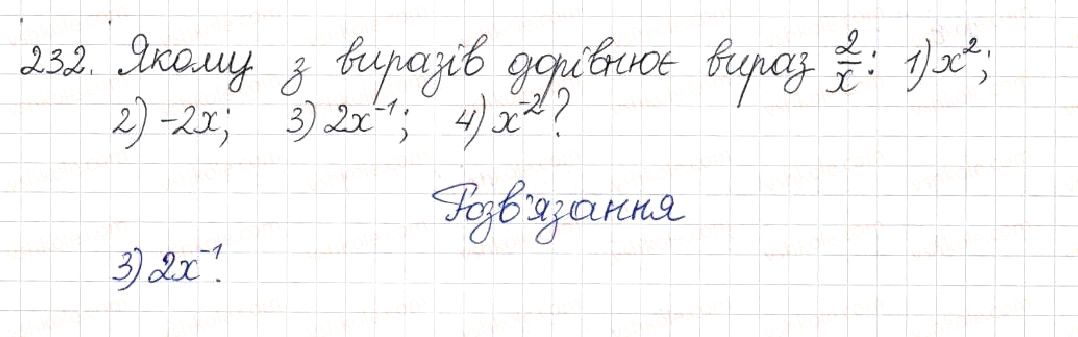 232. Якому з виразів дорівнює вираз 2/x: 1) x²;
2) -2x; 3) 2x⁻¹; 4) x⁻²?
Розв'язання
3) 2x⁻¹.